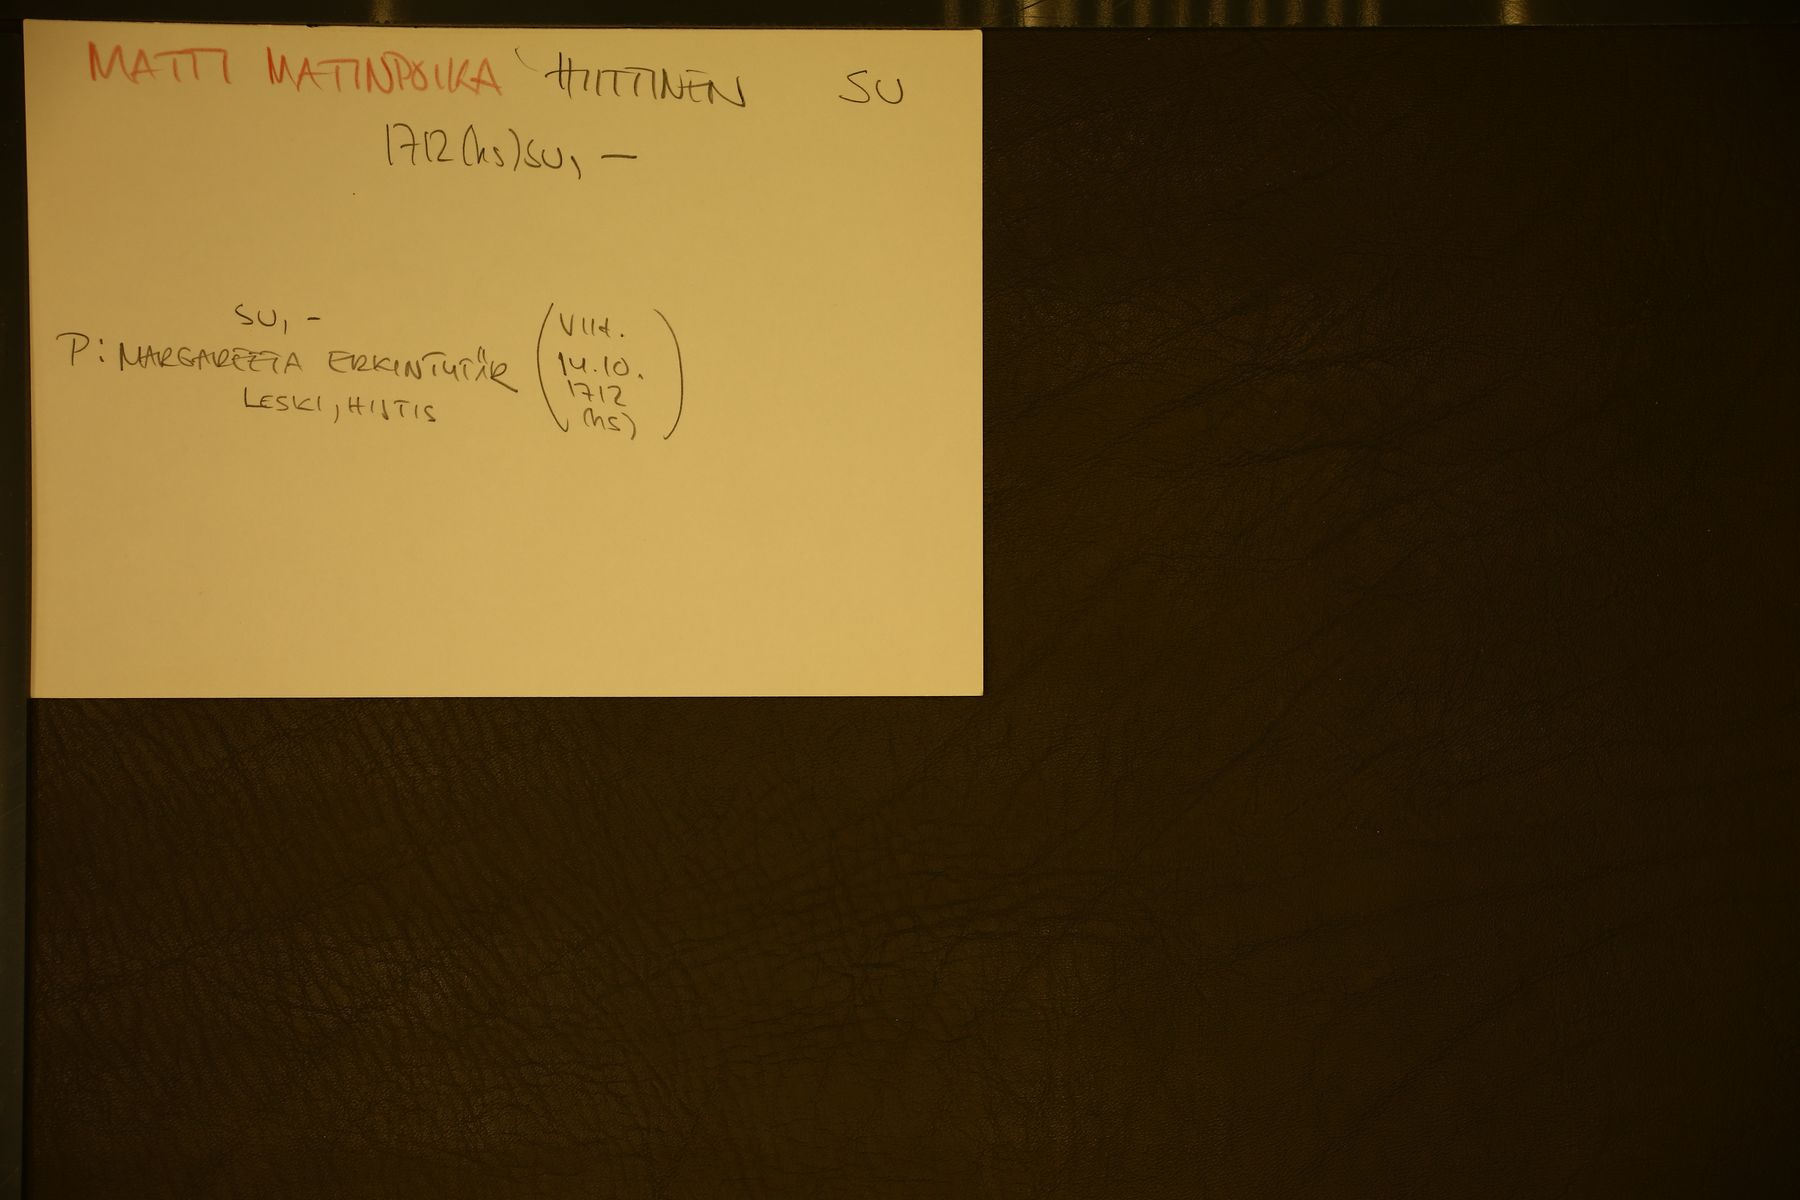 MATTI MATINPOIKA HIITTINEN SU
1712 (hs) SU, –
SU, –
P: MARGAREETA ERKINTYTÄR
LESKI, HIJTIS
(VIH.
14.10.
1712
(hs))